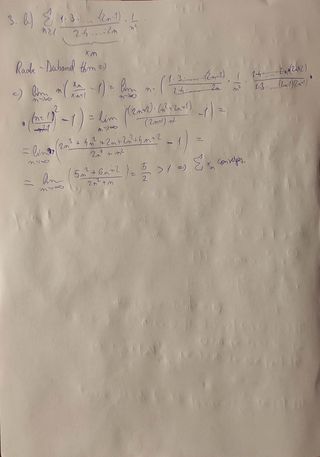 3. b) ∑_{n≥1} \frac{1·3·...·(2n-1)}{2·4·...·2n} · \frac{1}{n²}
x_n
Raabe-Duhamel thm =)
=) lim_{n→∞} n(\frac{x_n}{x_{n+1}} - 1) = lim_{n→∞} n · (\frac{1·3·...·(2n-1)}{2·4·...·2n} · \frac{1}{n²} · \frac{2·4·...·2n(2n+2)}{1·3·...·(2n-1)(2n+1)} ·
· (n+1)² - 1) = lim_{n→∞} (\frac{(2n+2)·(n²+2n+1)}{(2n+1)·n} - 1) =
= lim_{n→∞} (\frac{2n³+4n²+2n+2n²+4n+2}{2n²+n} - 1) =
= lim_{n→∞} (\frac{5n²+6n+2}{2n²+n}) = \frac{5}{2} > 1 =) ∑ x_n converges.